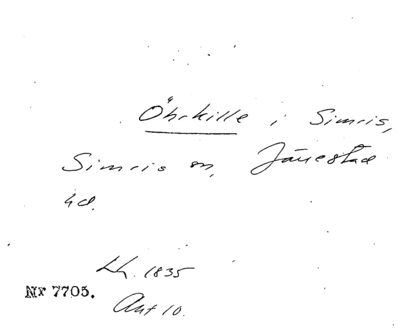 Öhrkille i Simris,
Simris sn, Järrestad
hd.
Lh. 1835
Nr 7705.
Akt 10.